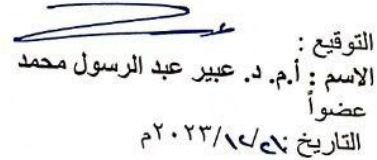 التوقيع :
الاسم : أ.م. د. عبير عبد الرسول محمد
عضواً
التاريخ /١٢/٢٠٢٣م